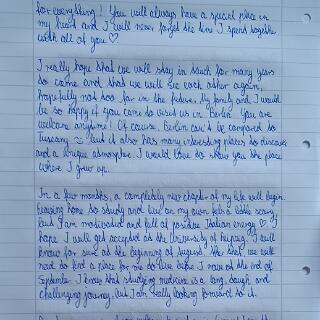 for everything! You will always have a special place in
my heart and I will never forget the time I spent together
with all of you ♡.
I really hope that we will stay in touch for many years
to come and that we will see each other again,
hopefully not too far in the future. My family and I would
be so happy if you came to visit us in Berlin. You are
welcome anytime! Of course Berlin can't be compared to
Tuscany but it also has many interesting places to discover
and a unique atmosphere. I would love to show you the place
where I grew up.
In a few months, a completely new chapter of my life will begin.
Leaving home to study and live on my own feels a little scary,
but I am motivated and full of positive Italian energy ♡. I
hope I will get accepted at the University of Leipzig. I will
know for sure at the beginning of August. After that, we will
need to find a place for me to live before I move at the end of
September. I know that studying medicine is a long, tough and
challenging journey, but I am really looking forward to it.